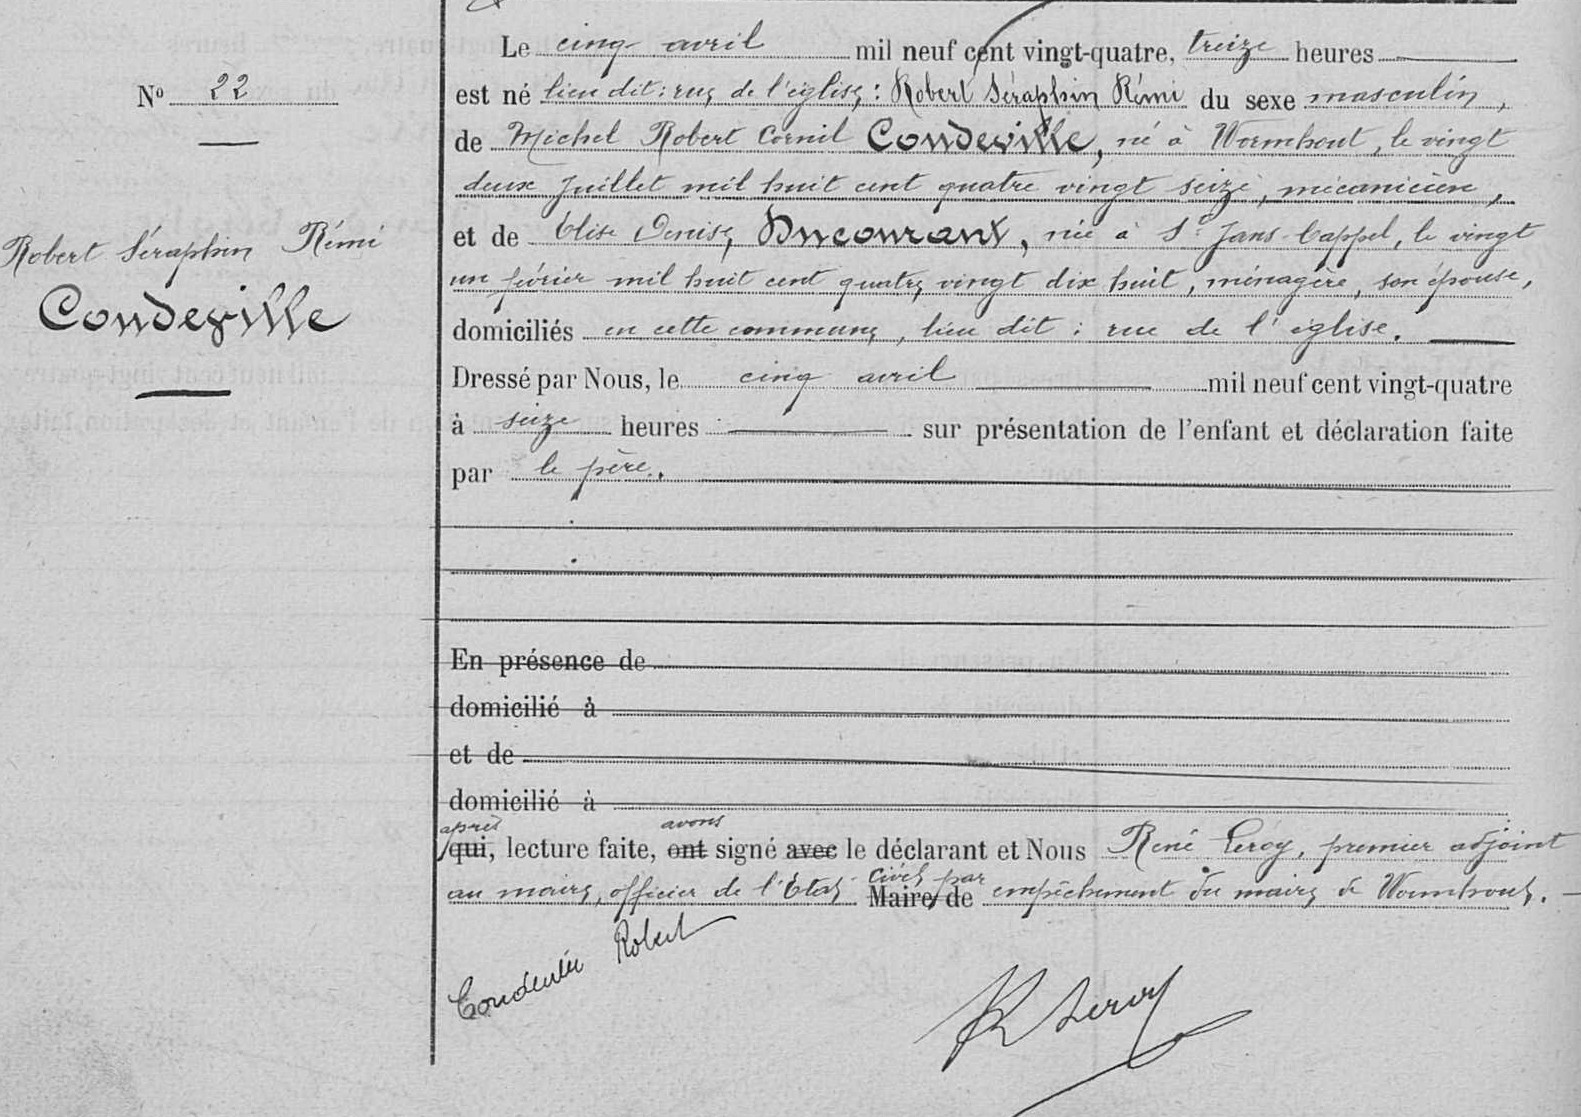 Le cinq avril mil neuf cent vingt-quatre, treize heures
N° 22
est né lieu dit : rue de l'église : Robert Séraphin Rémi du sexe masculin,
de Michel Robert Cornil Condeville, né à Wormhout, le vingt
deux Juillet mil huit cent quatre vingt seize, mécanicien,
Robert Séraphin Rémi
Condeville
et de Elise Denise Ducourant, née à St Jans-Cappel, le vingt
un février mil huit cent quatre vingt dix huit, ménagère, son épouse,
domiciliés en cette commune, lieu dit : rue de l'église.
Dressé par Nous, le cinq avril mil neuf cent vingt-quatre
à seize heures sur présentation de l'enfant et déclaration faite
par le père.
En présence de
domicilié à
et de
domicilié à
après avons
qui, lecture faite, ont signé avec le déclarant et Nous René Leroy, premier adjoint
civil par
au maire, officier de l'Etat Maire de empêchement du maire de Wormhout.
Condeville Robert
R Leroy